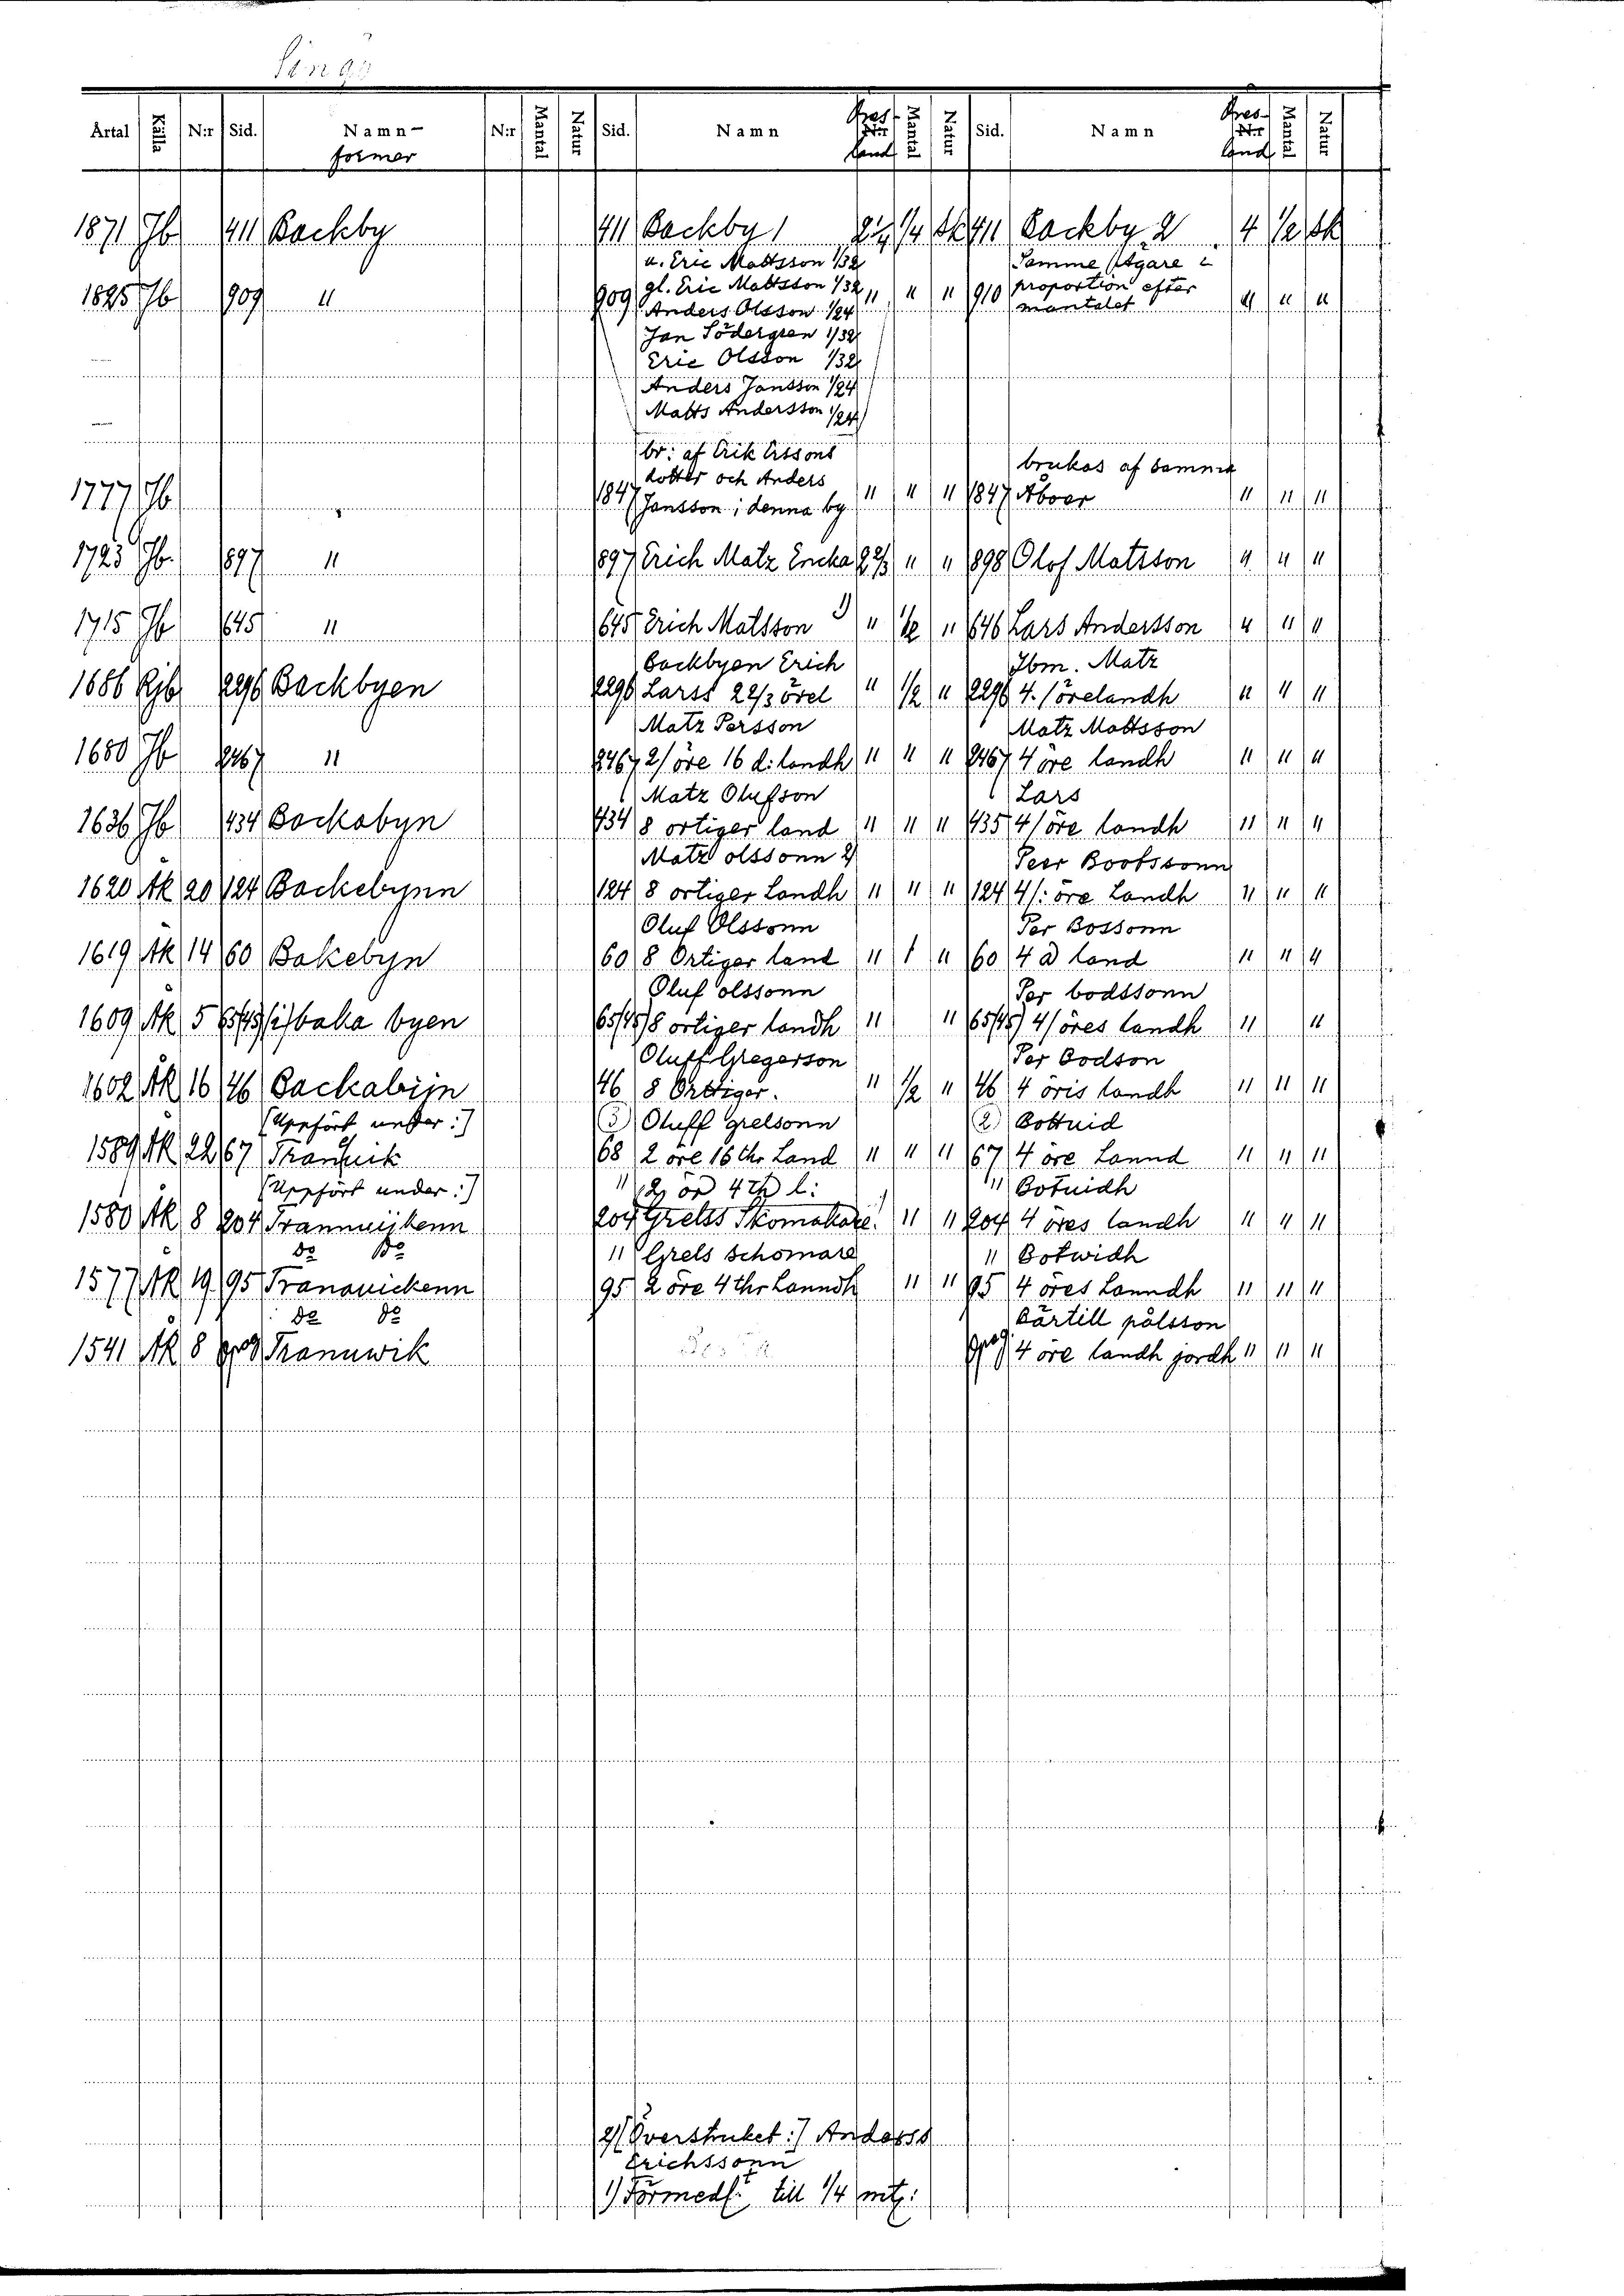 Singö
Årtal Källa N:r Sid. Namn- N:r Mantal Natur Sid. Namn Öres- N:r Mantal Natur Sid. Namn Öres- N:r Mantal Natur
former land land
1871 Jb 411 Backby 411 Backby 1 1/4 Sk 411 Backby 2 4 1/2 Sk
u. Eric Mattsson 1/32 Samme Ägare i
1825 Jb 909 " 909 gl. Eric Mattsson 1/32 " " " 910 proportion efter " " "
Anders Olsson 1/24 mantalet
Jan Södergren 1/32
Eric Olsson 1/32
Anders Jansson 1/24
Matts Andersson 1/24
br: af Erik Erssons brukas af samma
1777 Jb 1847 dotter och Anders " " " 1847 Åboer " " "
Jansson i denna by
1723 Jb. 897 " 897 Erich Matz Encka 2 2/3 " " 898 Olof Matsson " " "
1715 Jb 645 " 645 Erich Matsson 1) " 1/2 " 646 Lars Andersson " " "
Backbyen Erich Ibm. Matz
1686 Rjb 2296 Backbyen 2296 Larss 2 2/3 örel " 1/2 " 2296 4. / örelandh " " "
Matz Persson Matz Mattsson
1680 Jb 2467 " 2467 2/ öre 16 d: landh " " " 2467 4 öre landh " " "
Matz Olufson Lars
1636 Jb 434 Backabyn 434 8 ortiger land " " " 435 4/ öre landh " " "
Matz olssonn 2) Peer Bootssonn
1620 Åk 20 124 Backebynn 124 8 ortiger Landh " " " 124 4/: öre Landh " " "
Oluf Olssonn Per Bossonn
1619 Åk 14 60 Bakebyn 60 8 Ortiger land " 1 " 60 4 ö land " " "
Oluf olssonn Per bodssonn
1609 Åk 5 65/45 /i/ baka byen 65/45 8 ortiger landh " " 65/45 4/ öres landh " "
Oluff Gregerson Per Bodson
1602 Åk 16 46 Backabijn 46 8 Orttiger. " 1/2 " 46 4 öris landh " " "
(Uppfört under:) (3) Oluff grelsonn (2) Bottuid
1589 Åk 22 67 Tranuik 68 2 öre 16 thr Land " " " 67 4 öre Lannd " " "
(Uppfört under:) " 2 ör 4 th l: " Botuidh
1580 Åk 8 204 Trannuijkenn 204 Grelss Skomakare. " " 204 4 öres landh " " "
do do " Grels schomare " Botwidh
1577 Åk 19 95 Tranauickenn 95 2 öre 4 thr Lanndh " " 95 4 öres Lanndh " " "
do do Bärtill pålsson
1541 Åk 8 opag Tranuwik opag 4 öre landh jordh " " "
2) (Överstruket:) Anderss
Erichssonn
1) Förmedlt till 1/4 mtl: